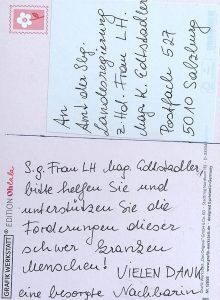 An
Amt der Sbg.
Landesregierung
z Hd. Frau LH.
Mag. K. Edtstadler
Postfach 527
5010 Salzburg
S.g. Frau LH Mag. Edtstadler,
bitte helfen Sie und
unterstützen Sie die
Forderungen dieser
schwer kranken
Menschen! VIELEN DANK
eine besorgte Nachbarin
GRAFIK WERKSTATT EDITION